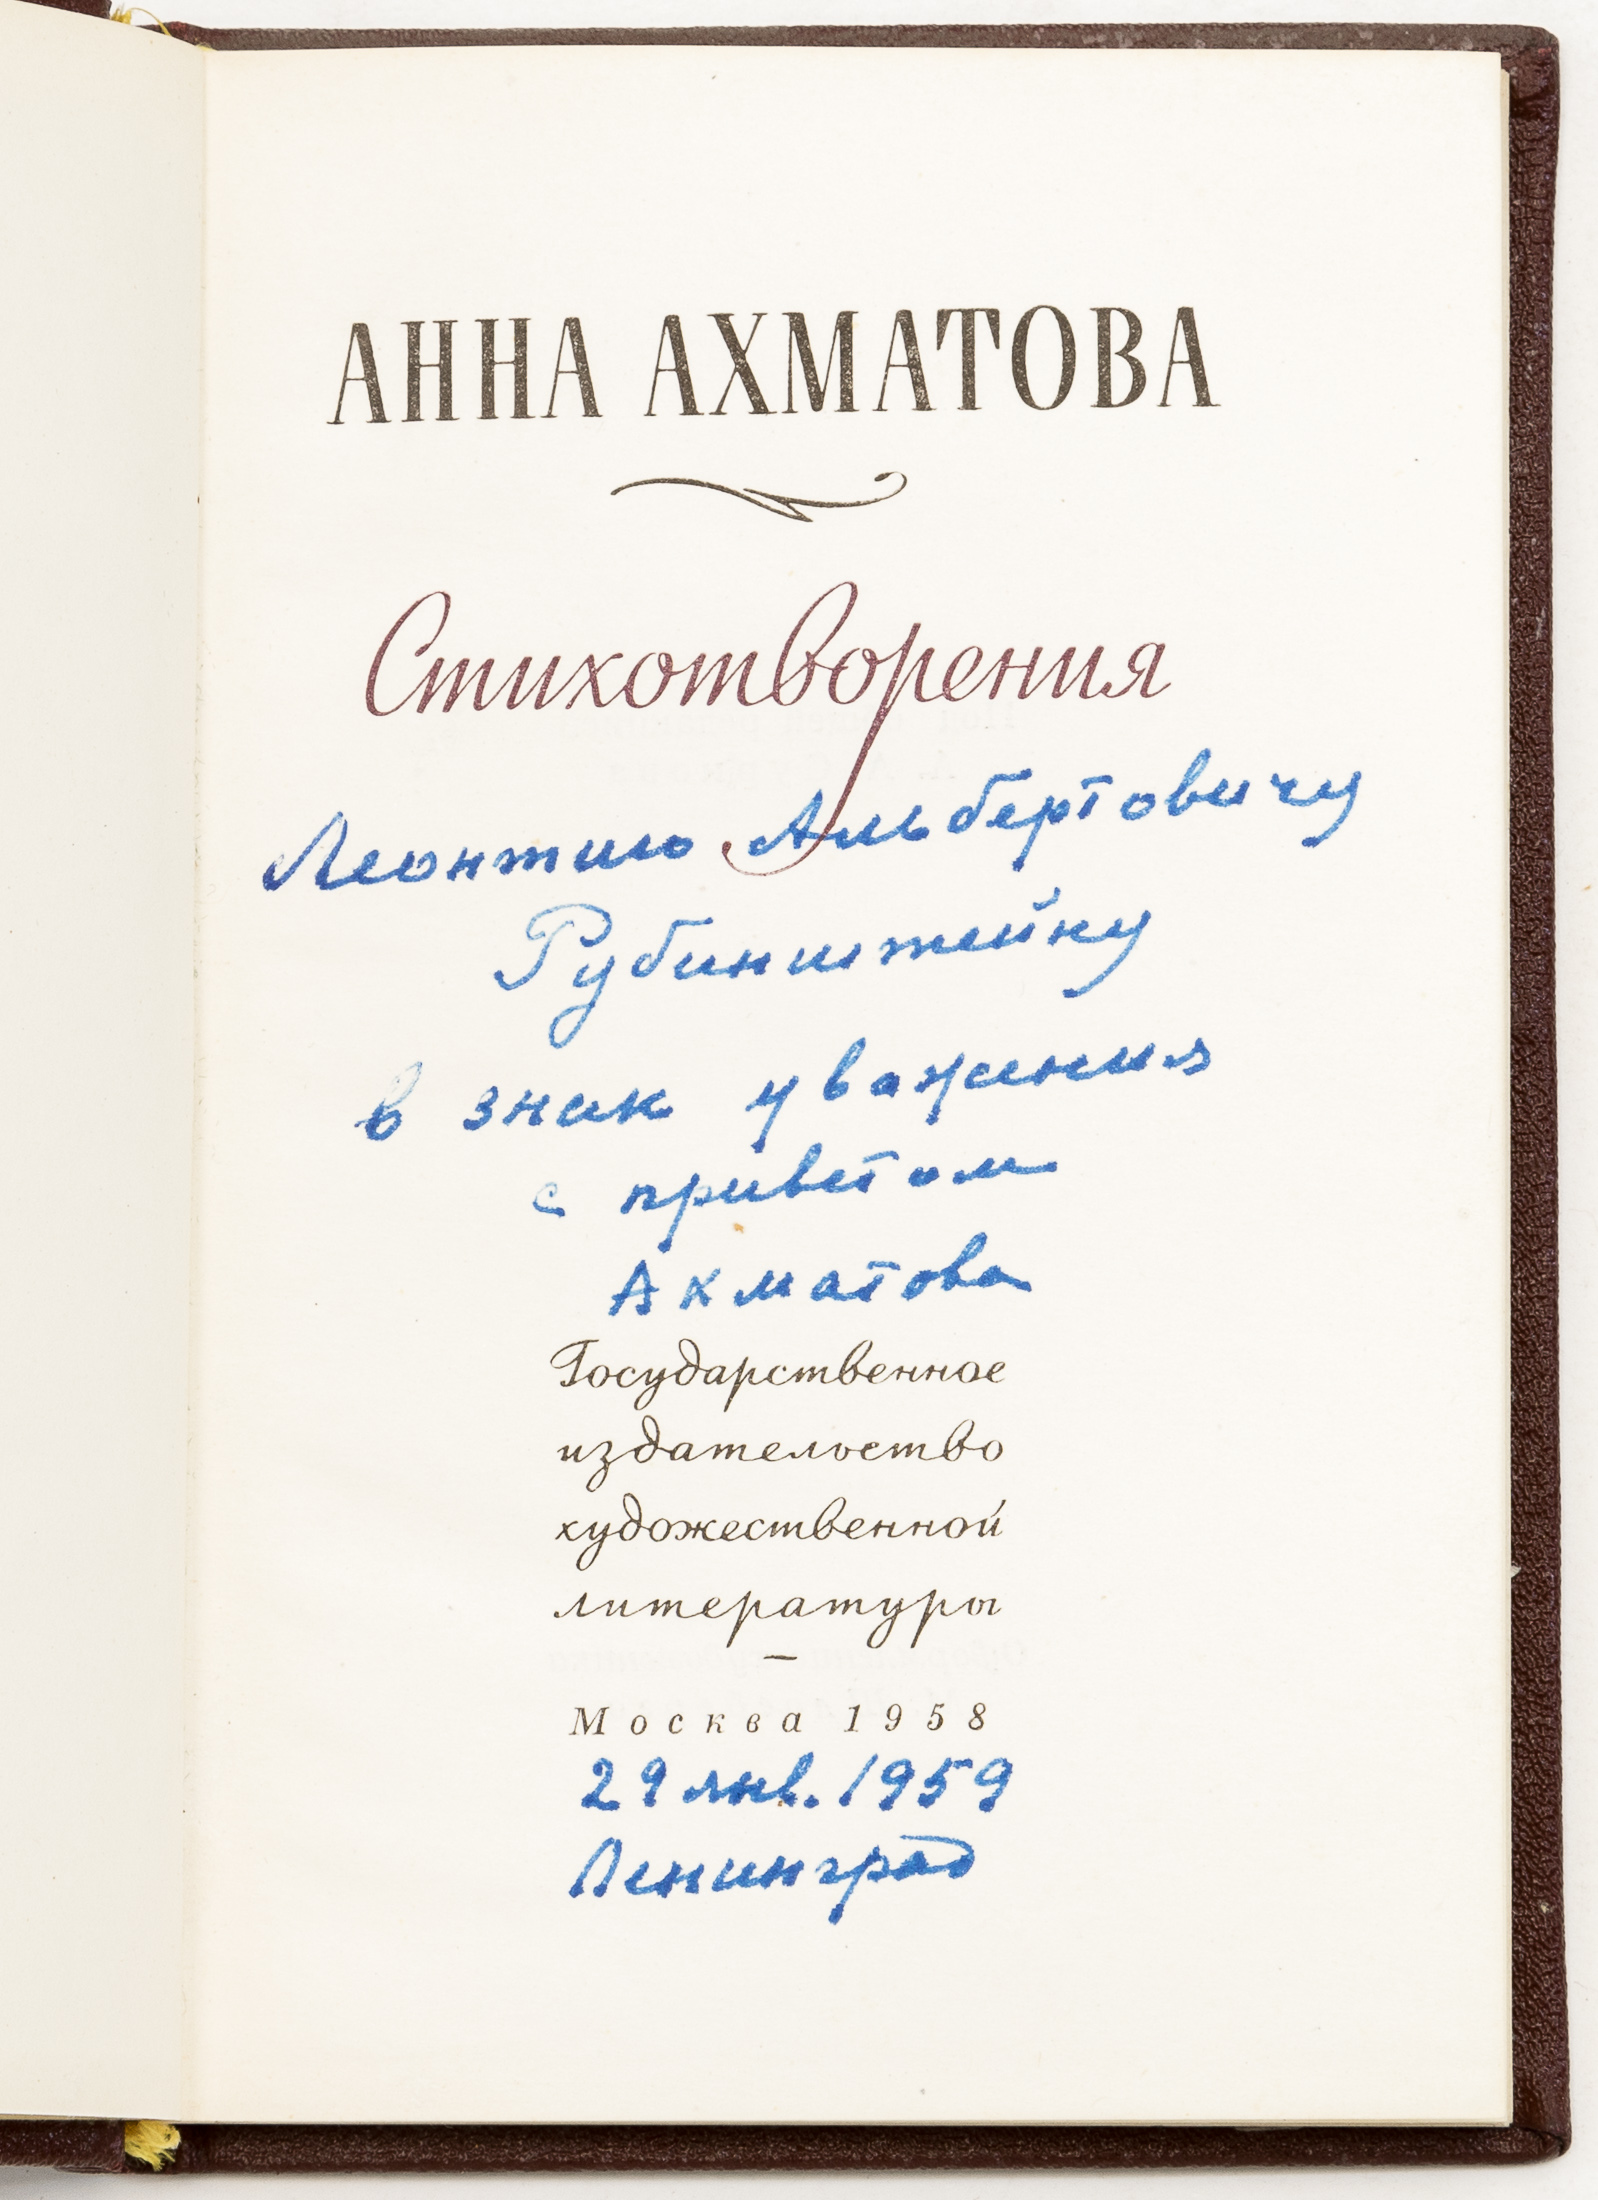 АННА АХМАТОВА
Стихотворения
Леонтию Альбертовичу
Рубинштейну
в знак уважения
с приветом
Ахматова
Государственное
издательство
художественной
литературы
Москва 1958
29 янв. 1959
Ленинград